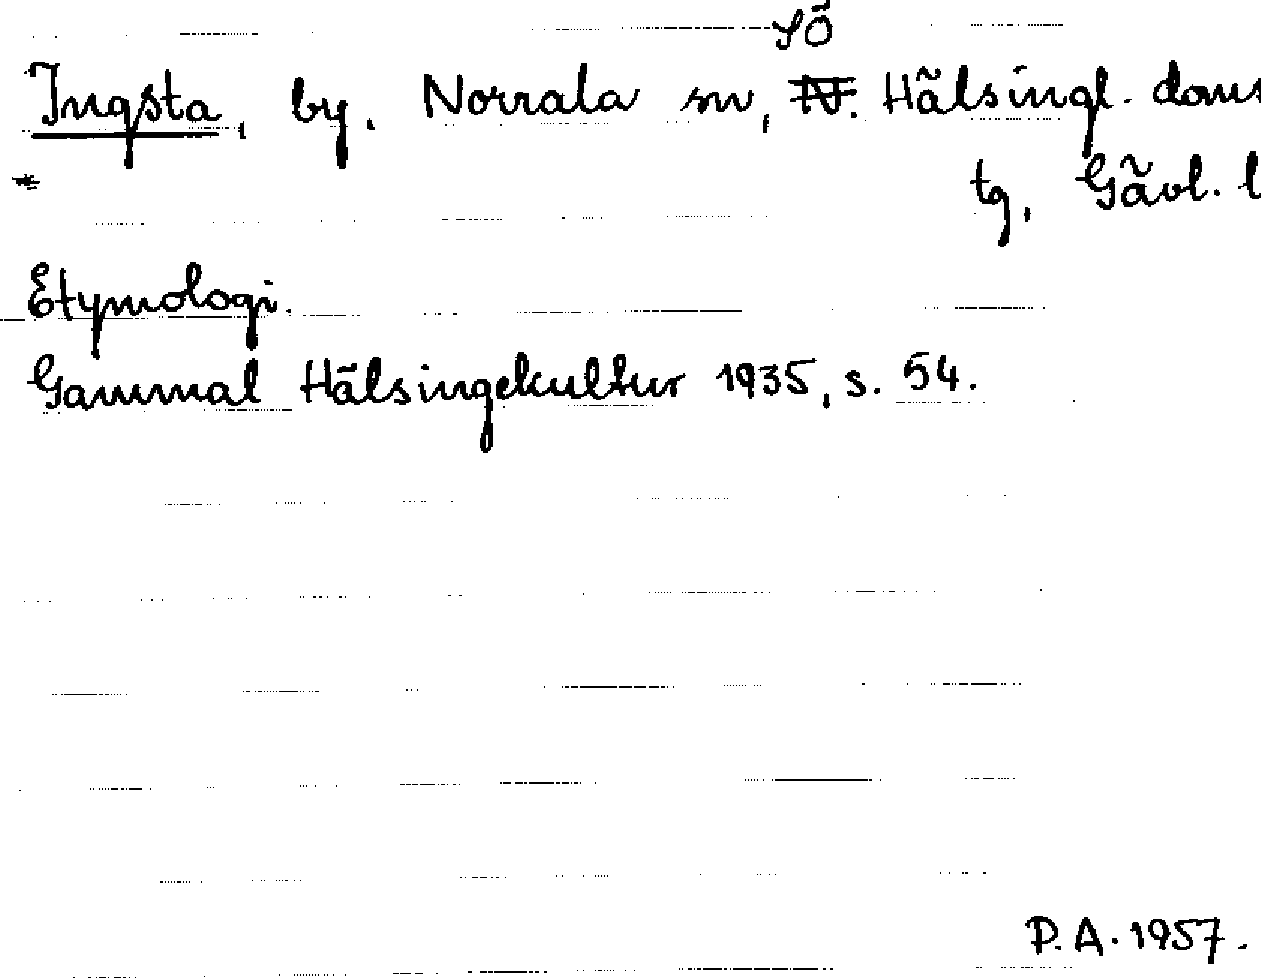 SÖ
Ingsta, by, Norrala sn, N. Hälsingl. doms
tg, Gävl. l
Etymologi.
Gammal Hälsingekultur 1935, s. 54.
P.A. 1957.